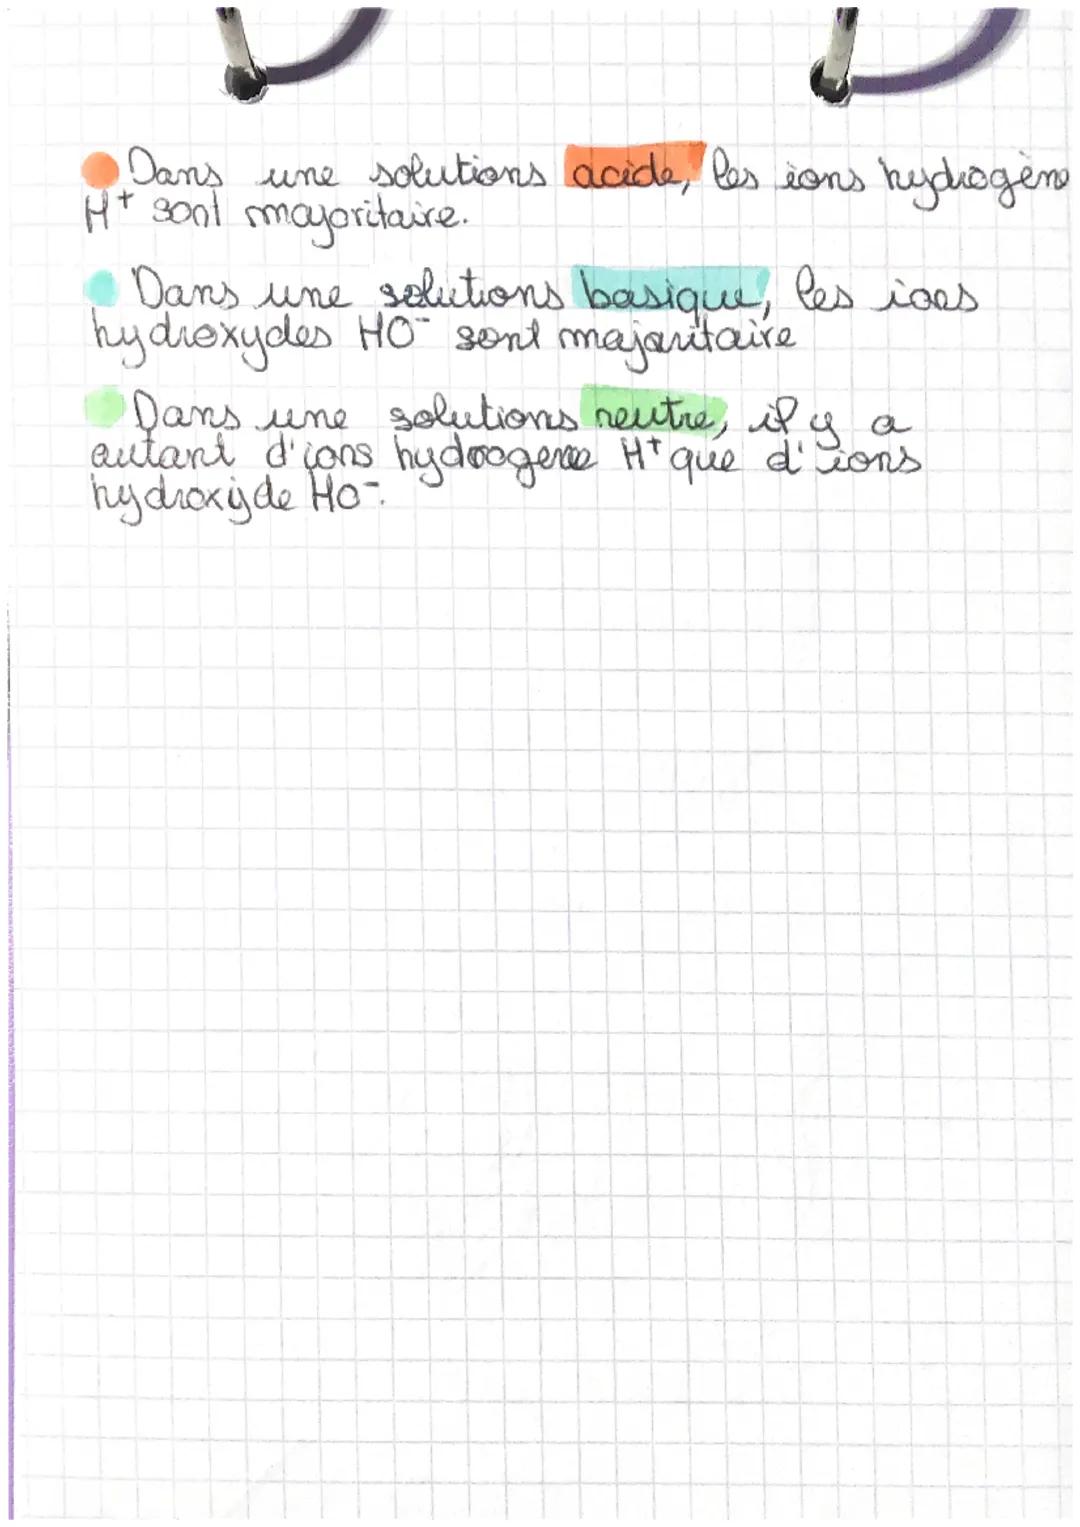 Dans une solutions acide, les ions hydrogène
H+ sont majoritaire.
Dans une solutions basique, les ions
hydroxydes HO⁻ sont majoritaire
Dans une solutions neutre, il y a
autant d'ions hydrogène H+ que d'ions
hydroxyde HO⁻.